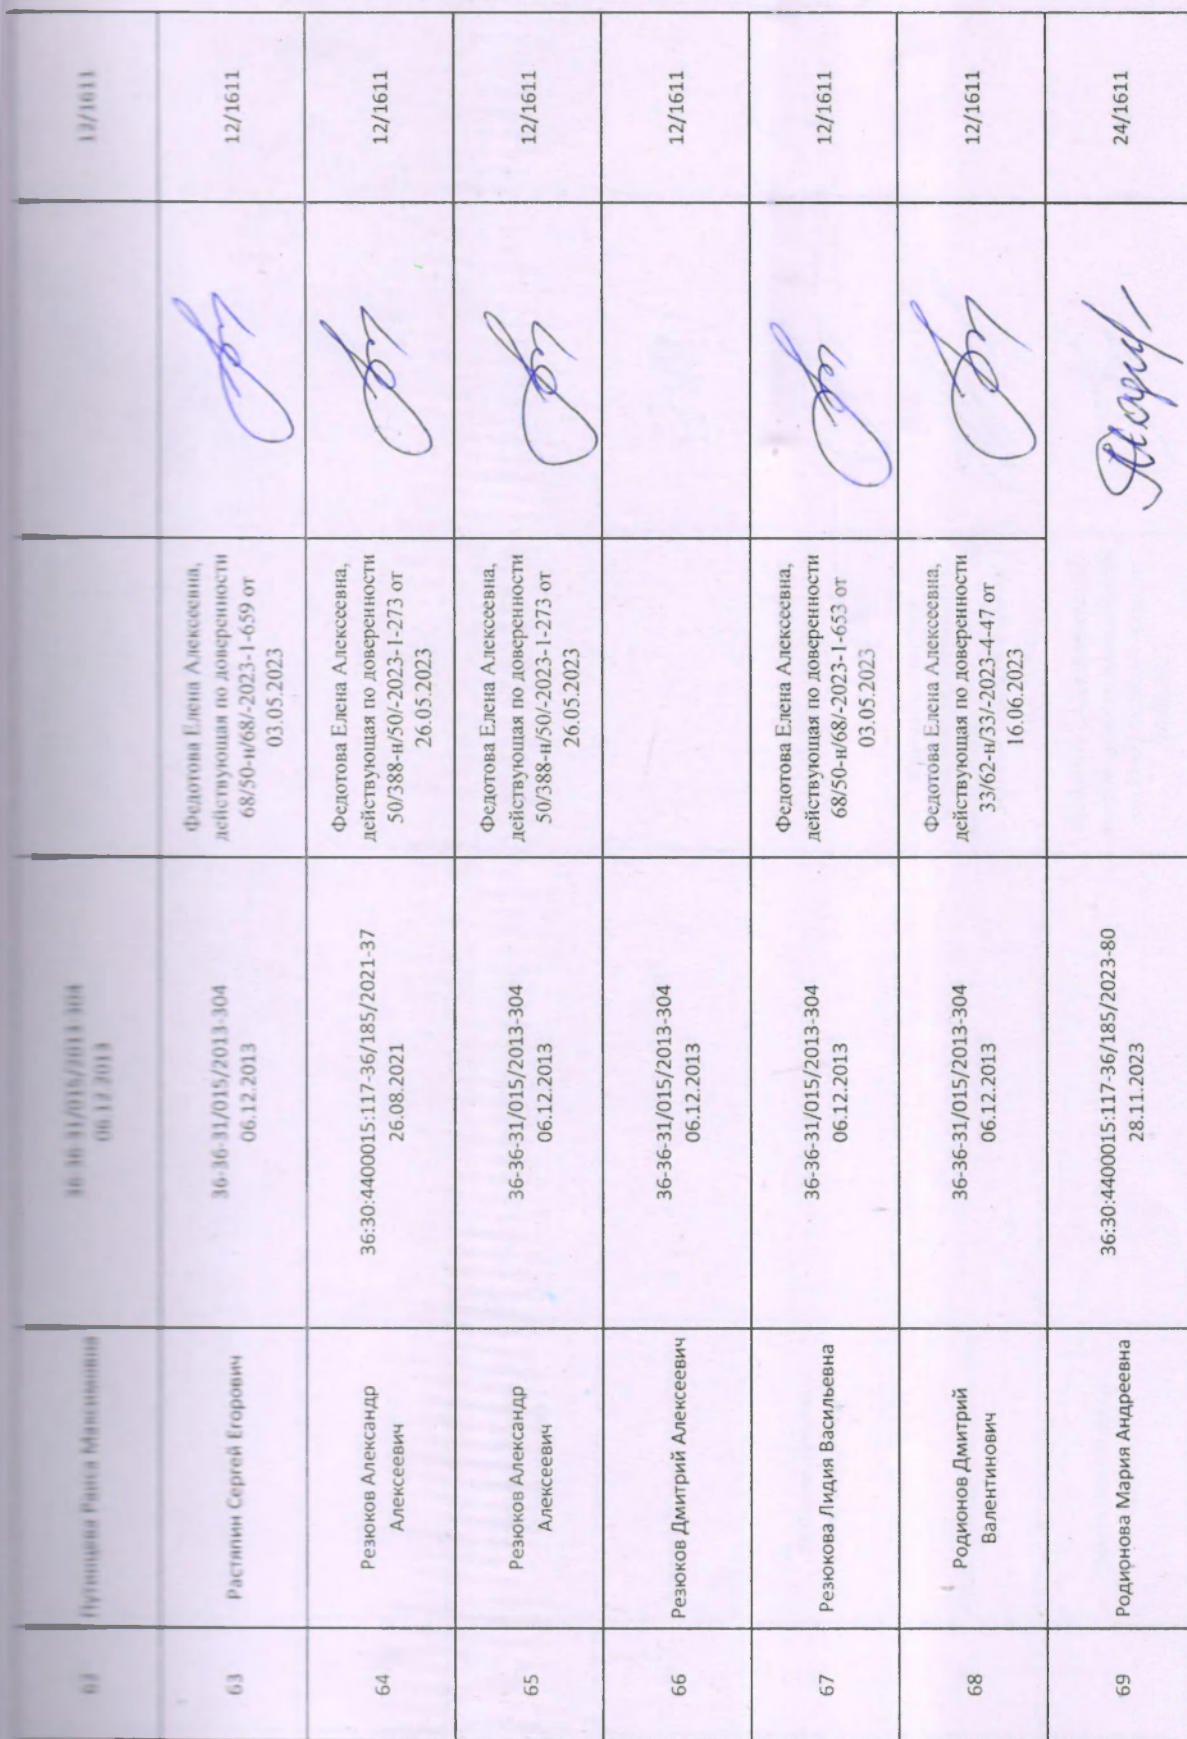 62
Путинцева Раиса Максимовна
36-36-31/015/2013-304
06.12.2013
12/1611
63
Растяпин Сергей Егорович
36-36-31/015/2013-304
06.12.2013
Федотова Елена Алексеевна,
действующая по доверенности
68/50-н/68/-2023-1-659 от
03.05.2023
12/1611
64
Резюков Александр
Алексеевич
36:30:4400015:117-36/185/2021-37
26.08.2021
Федотова Елена Алексеевна,
действующая по доверенности
50/388-н/50/-2023-1-273 от
26.05.2023
12/1611
65
Резюков Александр
Алексеевич
36-36-31/015/2013-304
06.12.2013
Федотова Елена Алексеевна,
действующая по доверенности
50/388-н/50/-2023-1-273 от
26.05.2023
12/1611
66
Резюков Дмитрий Алексеевич
36-36-31/015/2013-304
06.12.2013
12/1611
67
Резюкова Лидия Васильевна
36-36-31/015/2013-304
06.12.2013
Федотова Елена Алексеевна,
действующая по доверенности
68/50-н/68/-2023-1-653 от
03.05.2023
12/1611
68
Родионов Дмитрий
Валентинович
36-36-31/015/2013-304
06.12.2013
Федотова Елена Алексеевна,
действующая по доверенности
33/62-н/33/-2023-4-47 от
16.06.2023
12/1611
69
Родионова Мария Андреевна
36:30:4400015:117-36/185/2023-80
28.11.2023
24/1611